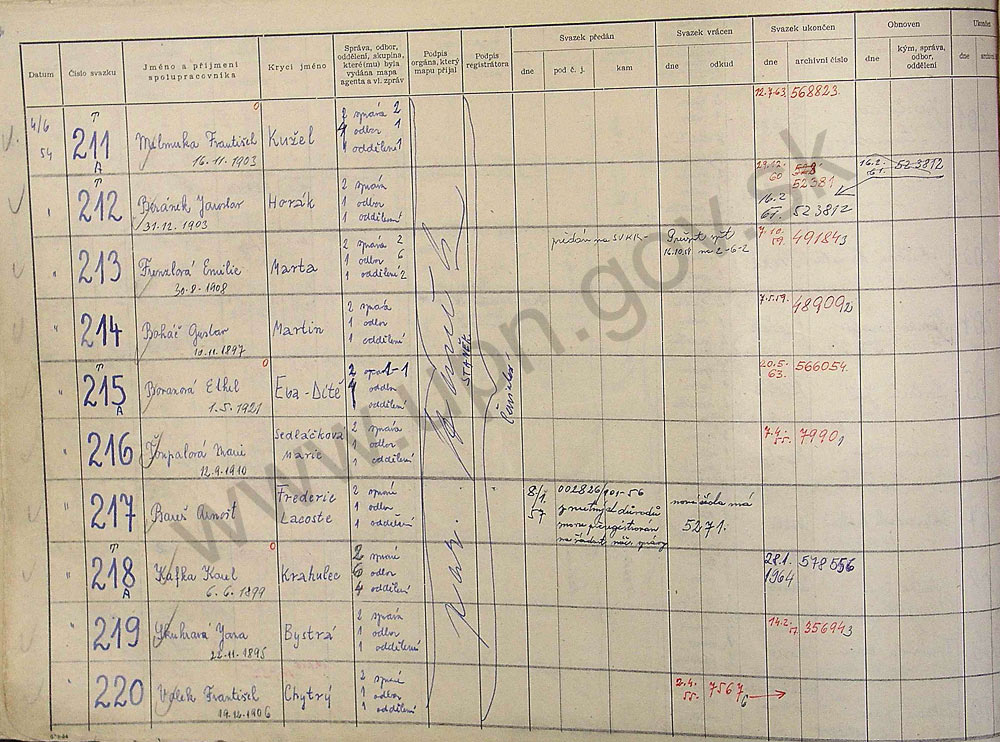 Datum
Číslo svazku
Jméno a příjmení
spolupracovníka
Krycí jméno
Správa, odbor,
oddělení, skupina,
které(mu) byla
vydána mapa
agenta a vl. zpráv
Podpis
orgána, který
mapu přijal
Podpis
registrátora
Svazek předán
dne
pod č. j.
kam
Svazek vrácen
dne
odkud
Svazek ukončen
dne
archivní číslo
Obnoven
dne
kým, správa,
odbor,
oddělení
dne
4/6
54
211
A
František
16.11.1903
Kužel
2 správa 2
odbor 1
1 oddělení 1
12.7.63 568823
" 212
Beránek Jaroslav
31.12.1903
Horák
2 správa
1 odbor
1 oddělení
29.12.
60
52381
16.2
61. 523812
16.2.
61. 523812
" 213
Frenzlová Emilie
30.8.1908
Marta
2 správa 2
1 odbor 6
1 oddělení 2
předán na
16.10.58 na 2-6-2
7.10.
59. 491843
" 214
Boháč Gustav
10.11.1897
Martin
2 správa
1 odbor
1 oddělení
7.5.59. 489092
" 215
A
Ethel
1.5.1921
Eva-Dítě
2 1-1
odbor
oddělení
20.5.
63. 566054.
STANĚK
" 216
12.9.1910
Sedláčková
Marie
2 správa
1 odbor
1 oddělení
7.4.
55. 79901
" 217
Bareš Arnošt
Frederic
Lacoste
2 správa
1 odbor
1 oddělení
8/1.
57
002826/101-56
z důvodů
přeregistrován
na
nové čísla má
5271.
" 218
A
Kafka Karel
6.6.1899
Krahulec
2 správa
6 odbor
4 oddělení
28.1.
1964
578556
" 219
Jana
22.11.1895
Bystrá
2 správa
1 odbor
1 oddělení
14.2.
57. 356943
220
Válek František
19.12.1906
Chytrý
2 správa
1 odbor
1 oddělení
2.4.
55. 75676
www.upn.gov.sk